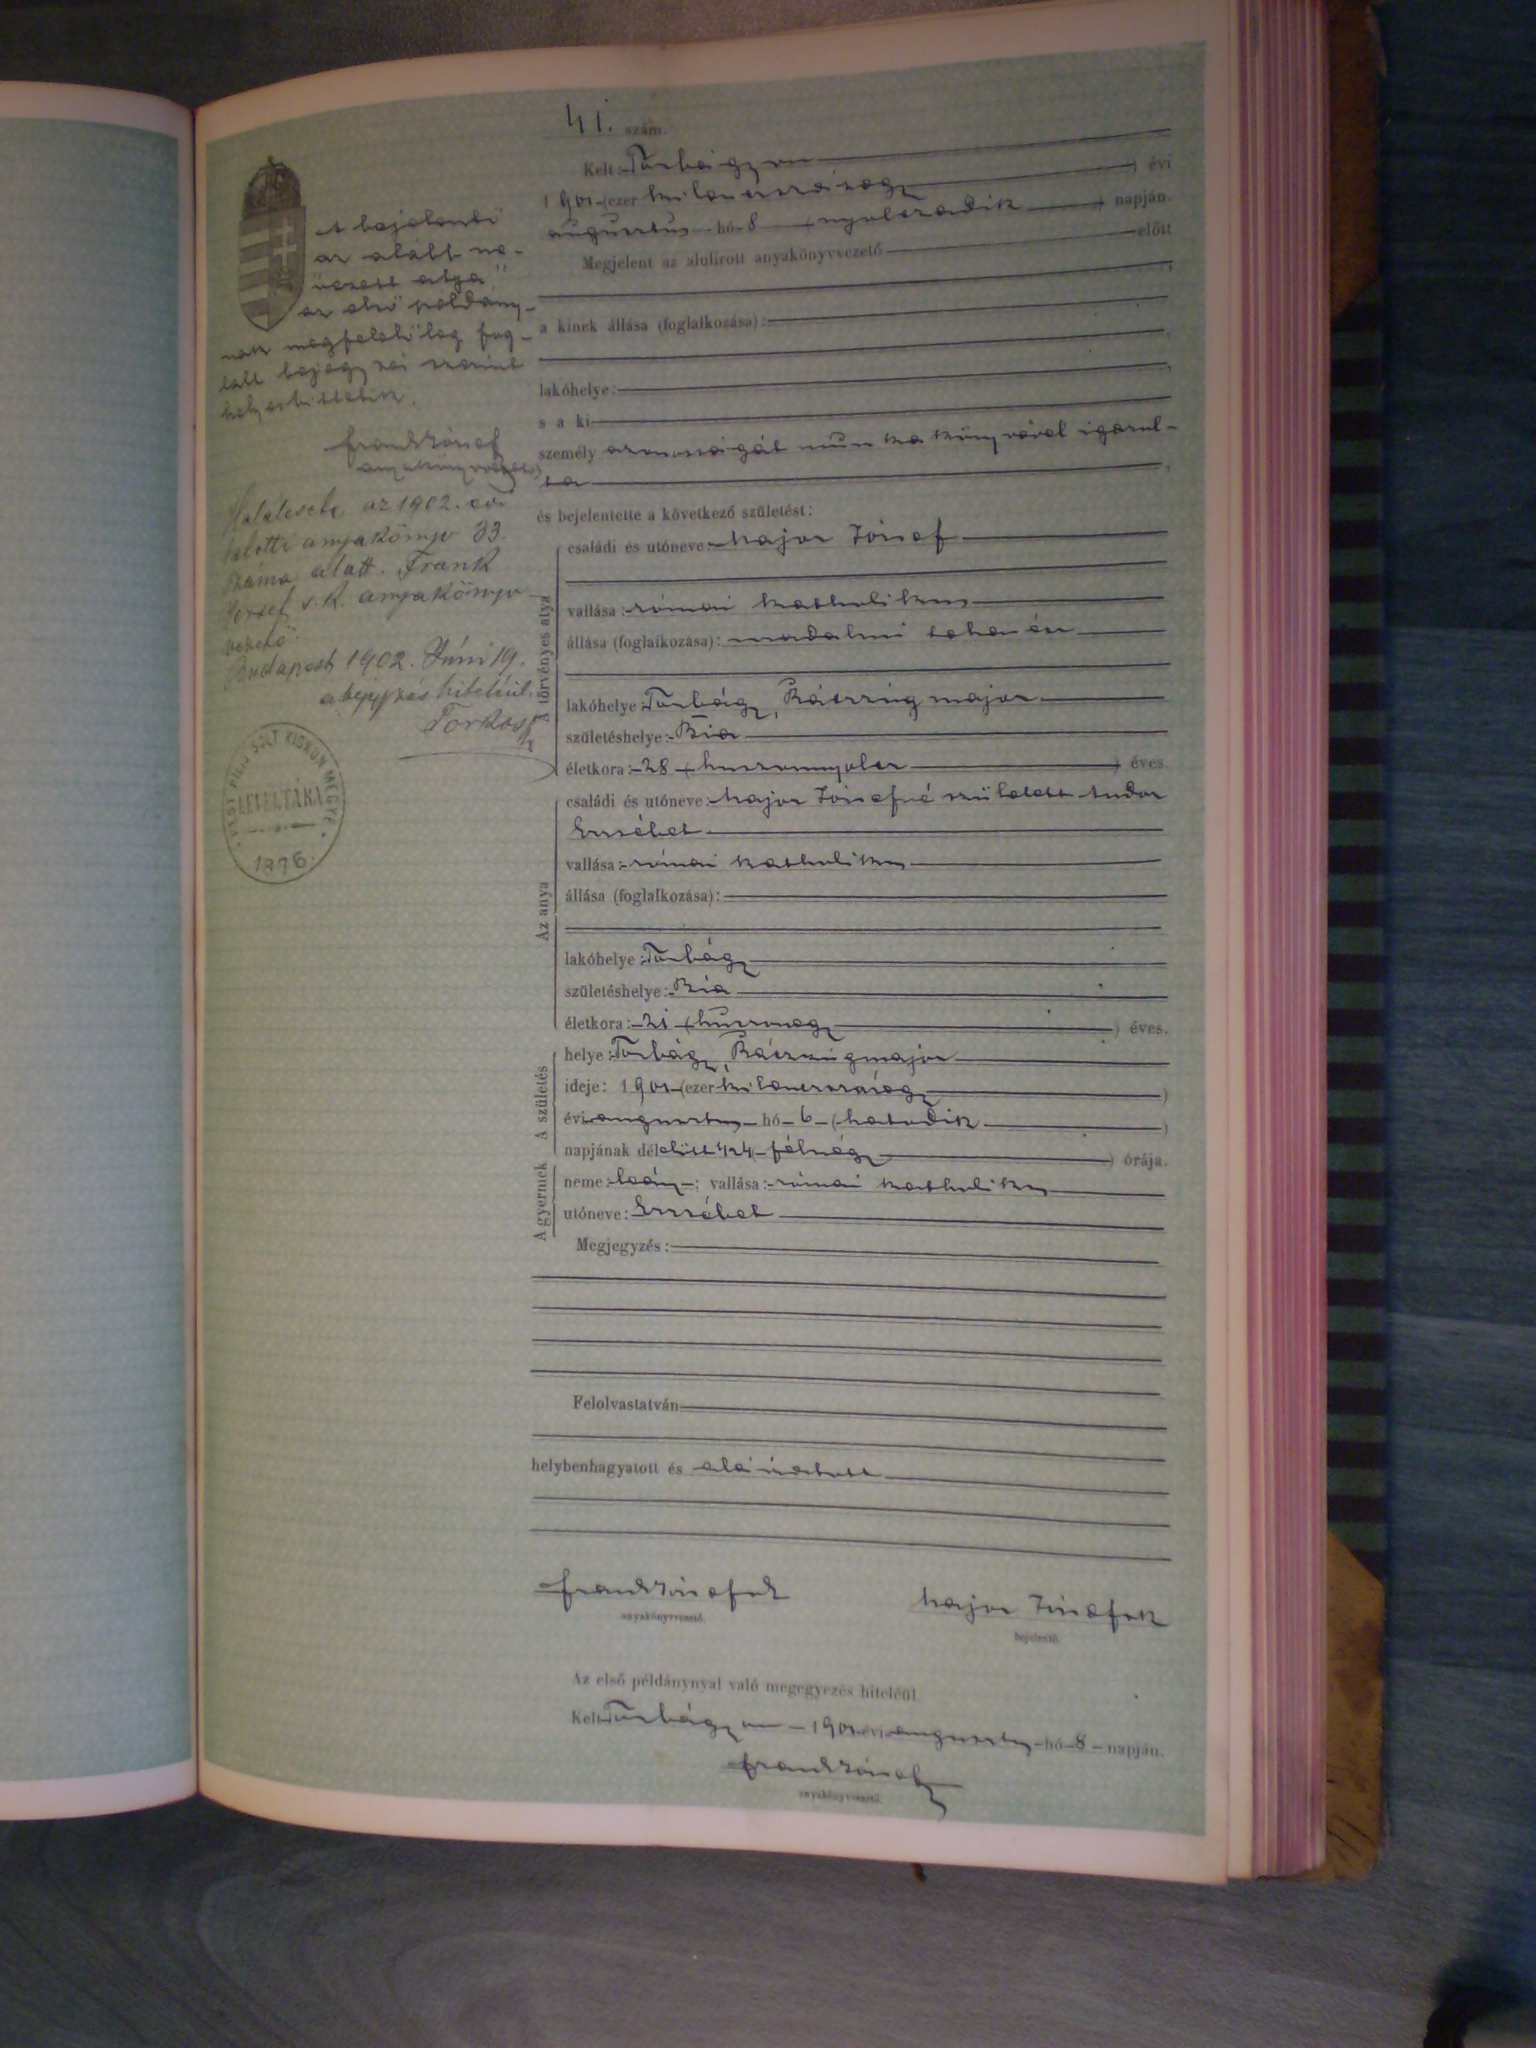 41. szám.
Kelt: Torbágyon
1901 (ezer kilenczszázegy) évi
augusztus hó 8 (nyolczadik) napján.
Megjelent az alulirott anyakönyvvezető előtt
a kinek állása (foglalkozása):
lakóhelye:
s a ki
személy azonosságát munkakönyvével igazol-
ta
és bejelentette a következő születést:
A törvényes atya
családi és utóneve: Major József
vallása: római katholikus
állása (foglalkozása): uradalmi
lakóhelye: Torbágy, major
születéshelye: Bia
életkora: 28 (huszonnyolcz) éves.
Az anya
családi és utóneve: Major Józsefné született
Erzsébet
vallása: római katholikus
állása (foglalkozása):
lakóhelye: Torbágy
születéshelye: Bia
életkora: 21 (huszonegy) éves.
A születés
helye: Torbágy, major
ideje: 1901 (ezer kilenczszázegy)
évi augusztus hó 6 (hatodik)
napjának délelőtt 1/2 4 (félnégy) órája.
A gyermek
neme: leány; vallása: római katholikus
utóneve: Erzsébet
Megjegyzés:
Felolvastatván
helybenhagyatott és aláiratott
Frank József sk
anyakönyvvezető.
Major József sk
bejelentő.
Az első példánynyal való megegyezés hiteléül.
Kelt Torbágyon 1901 évi augusztus hó 8 napján.
Frank József
anyakönyvvezető.
A bejelentő
az alább ne-
vezett atya"
az első példány-
nak megfelelőleg fog-
lalt bejegyzés szerint
helyesbittetik.
Frank József
anyakönyvvezető
Halálesete az 1902. évi
halotti anyakönyv 33.
száma alatt. Frank
József s. k. anyakönyv
vezető.
Budapest 1902. Júni 19.
a bejegyzés hiteléül.
Torkos
PEST PILIS SOLT KISKUN MEGYE
LEVÉLTÁRA
1876.